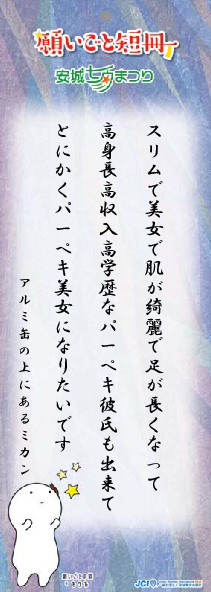 願いごと短冊
安城七夕まつり
スリムで美女で肌が綺麗で足が長くなって
高身長高収入高学歴なパーペキ彼氏も出来て
とにかくパーペキ美女になりたいです
アルミ缶の上にあるミカン
JCI